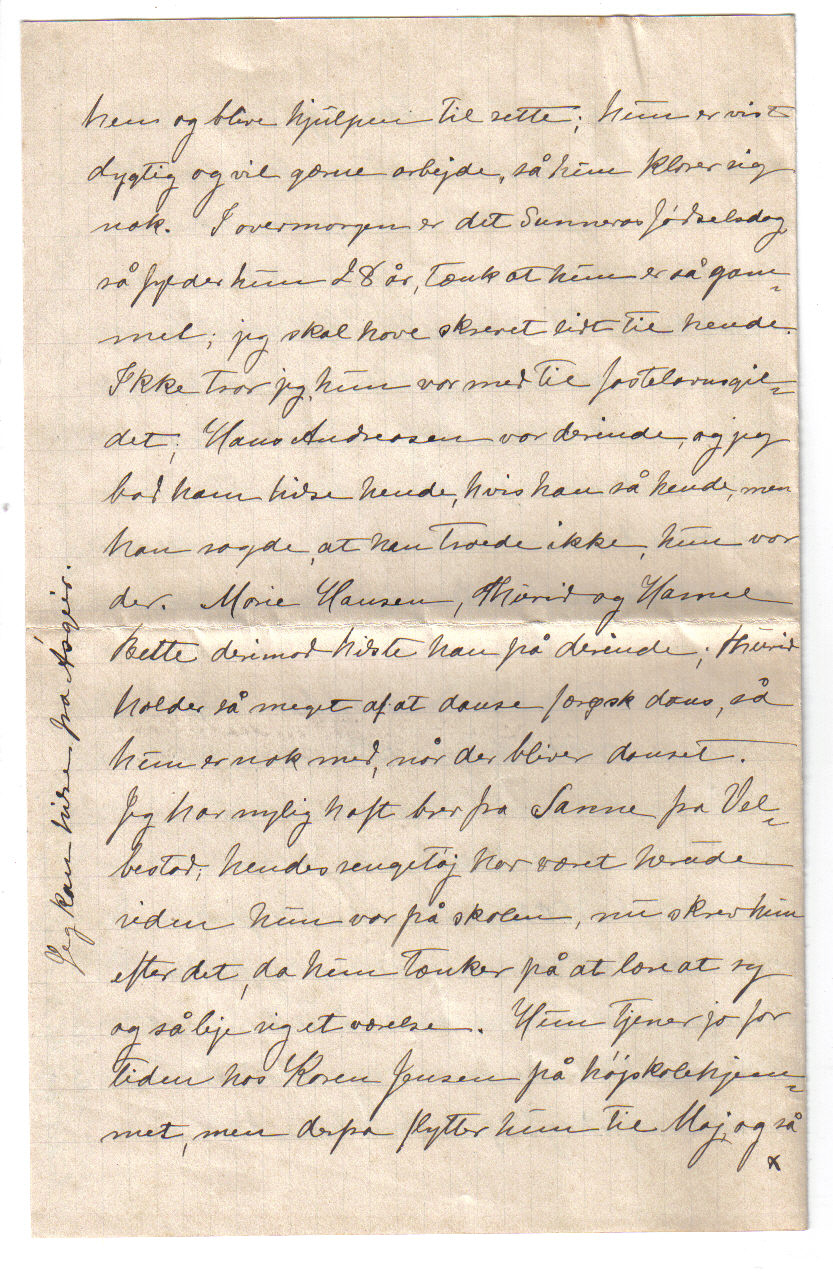 hen og blive hjulpen til rette; hun er vist
dygtig og vil gærne arbejde, så hun klarer sig
nok. I overmorgen er det Sunnevas fødselsdag,
så fylder hun 28 år, tænk at hun er så gam=
mel; jeg skal have skrevet lidt til hende.
Ikke tror jeg, hun var med til fastelavnsgil=
det; Hans Andreasen var derinde, og jeg
bad ham hilse hende, hvis han så hende, men
han sagde, at han troede ikke, hun var
der. Marie Hansen, Thurid og Hanne
Bette derimod hilste han på derinde; Thurid
holder så meget af at danse færøsk dans, så
hun er nok med, når der bliver danset.
Jeg har nylig haft brev fra Sanne fra Vel=
bestad; hendes sengetøj har været herude
siden hun var på skolen, nu skrev hun
efter det, da hun tænker på at lære at sy
og så leje sig et værelse. Hun tjener jo for
tiden hos Karen Jensen på højskolehjem=
met, men derfra flytter hun til Maj, og så
x
Jeg kan hilse fra Ásgeir.